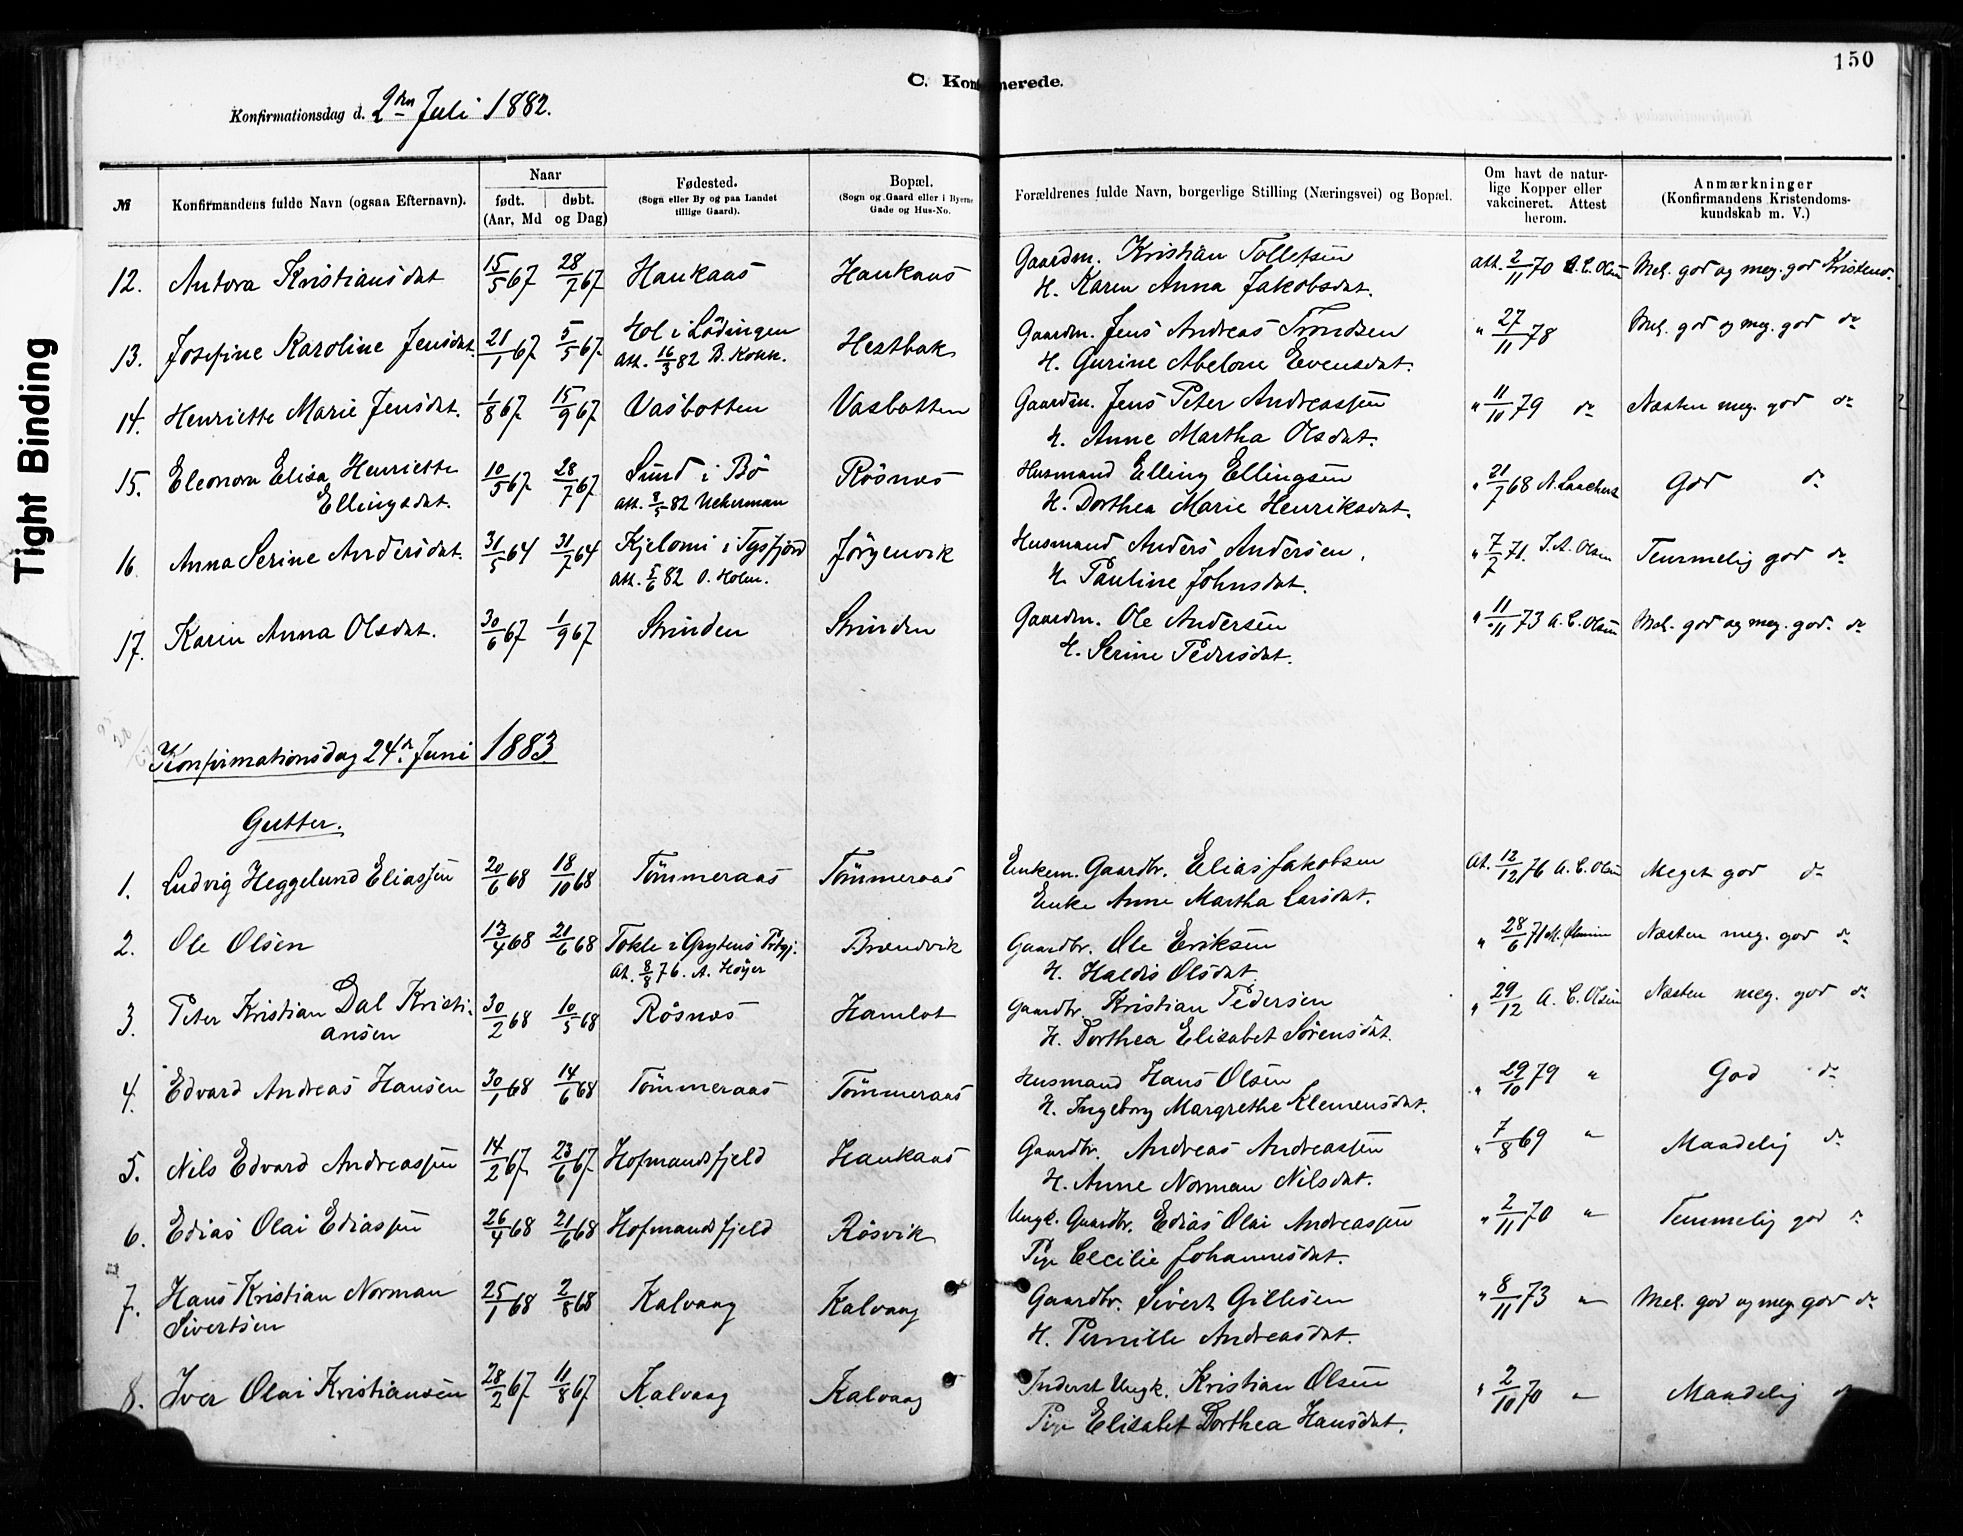 150
C. Konfirmerede.
Konfirmationsdag d. 2den Juli 1882.
Tight Binding
№ Konfirmandens fulde Navn (ogsaa Efternavn). Naar født. (Aar, Md døbt. og Dag) Fødested. (Sogn eller By og paa Landet tillige Gaard). Bopæl. (Sogn og Gaard eller i Byerne Gade og Hus-No. Forældrenes fulde Navn, borgerlige Stilling (Næringsvei) og Bopæl. Om havt de naturlige Kopper eller vakcineret. Attest herom. Anmærkninger (Konfirmandens Kristendomskundskab m. V.)
12. Antora Kristiansdat 15/5 67 28/7 67 Haukaas Haukaas Gaardm. Kristian Tollefsen att. 2/11 70 A. C. Olsen Mel. god og meg. god Kristend.
H. Karen Anna Jakobsdat.
13. Josefine Karoline Jensdat. 21/1 67 5/5 67. Hol i Lödingen Hestbak Gaardm. Jens Andreas Trondsen " 27/11 78 Mel. god og meg. god do
att. 16/3 82 B. Kokk. H. Gurine Abelone Evensdat.
14. Henriette Marie Jensdat. 1/8 67 15/9 67 Vasbotten Vasbotten Gaardm. Jens Peter Andreassen " 11/10 79 do Næsten meg. god do
H. Anne Martha Olsdat.
15. Eleonora Elisa Henriette 10/5 67 28/7 67 Sund i Bö Rösnæs Husmand Elling Ellingsen " 21/7 68 God do
Ellingsdat. att. 8/5 82 Uckerman H. Dorthea Marie Henriksdat.
16 Anna Serine Andersdat. 31/5 64 31/7 64 Kjelomi i Tysfjord Jörgenvik Husmand Anders Andersen. " 7/7 71. J. A. Olsen Temmelig god do
att. 5/6 82 O. Holm. H. Pauline Johnsdat.
17. Karen Anna Olsdat. 30/6 67 1/9 67 Strinden Strinden Gaardm. Ole Andersen " 11/11 73 A. C. Olsen Mel. god og meg. god. do
H. Serine Pedersdat.
Konfirmationsdag 24de Juni 1883
Gutter.
1. Ludvig Heggelund Eliassen 20/6 68 18/10 68 Tömmeraas Tömmeraas Enkem. Gaardbr. Elias Jakobsen At. 12/12 76 A. C. Olsen Meget god do
Enke Anne Martha Larsdat.
2. Ole Olsen 13/4 68 21/6 68 Tokle i Grytens Prstgj. Brændvik Gaardbr. Ole Eriksen " 28/6 71 Næsten meg. god do
At. 8/8 76. A. Höyer H. Haldis Olsdat
3. Peter Kristian Dal Kristi- 30/2 68 10/5 68 Rösnæs Hamlot Gaardbr. Kristian Pedersen " 29/12 A. C. Olsen Næsten meg. god do
ansen H. Dorthea Elisabet Sörensdat.
4. Edvard Andreas Hansen 30/1 68 14/6 68 Tömmeraas Tömmeraas Husmand Hans Olsen " 29/10 79 " God do
H. Ingeborg Margrethe Klemensdat.
5. Nils Edvard Andreassen 14/2 67 23/6 67. Hofmandsfjeld Haukaas Gaardbr. Andreas Andreassen " 7/8 69 " Maadelig do
H. Anne Norman Nilsdat.
6. Edias Olai Ediassen 26/4 68 21/6 68 Hofmandsfjeld Rösvik Ungk. Gaardbr. Edias Olai Andreassen " 2/11 70 " Temmelig god do
Pige Cecilie Johannesdat.
7. Hans Kristian Norman 25/1 68 2/8 68 Kalvaag Kalvaag Gaardbr. Sivert Gillisen " 8/11 73 " Mel. god og meg. god do
Sivertsen H. Pernille Andreasdat.
8. Iver Olai Kristiansen 28/2 67 11/8 67 Kalvaag Kalvaag Inderst Ungk. Kristian Olsen " 2/10 70 " Maadelig do
Pige Elisabet Dorthea Hansdat.